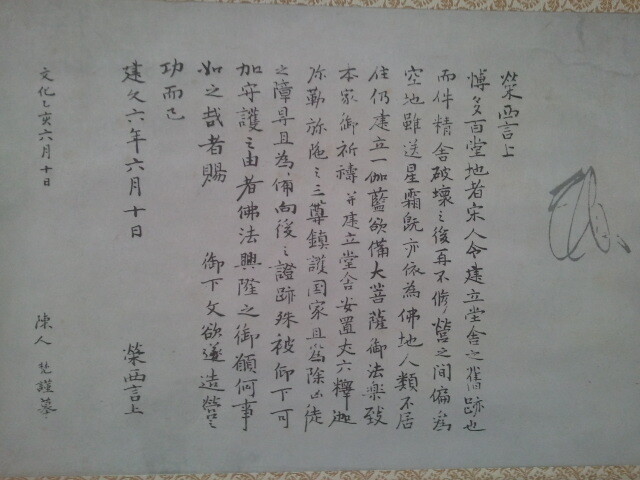 榮西言上
博多百堂地者宋人令建立堂舎之舊跡也
而件精舎破壊之後再不修營之間偏為
空地雖送星霜既亦依為佛地人類不居
住仍建立一伽藍欲備大菩薩御法楽致
本家御祈禱并建立堂舎安置丈六釋迦
弥勒弥陁之三尊鎮護国家且為除凶徒
之障㝵且為備向後之證跡殊被仰下可
加守護之由者佛法興隆之御願何事
如之哉者賜 御下文欲遂造營之
功而已
建久六年六月十日 榮西言上
文化乙亥六月十日 陳人 梵謹摹